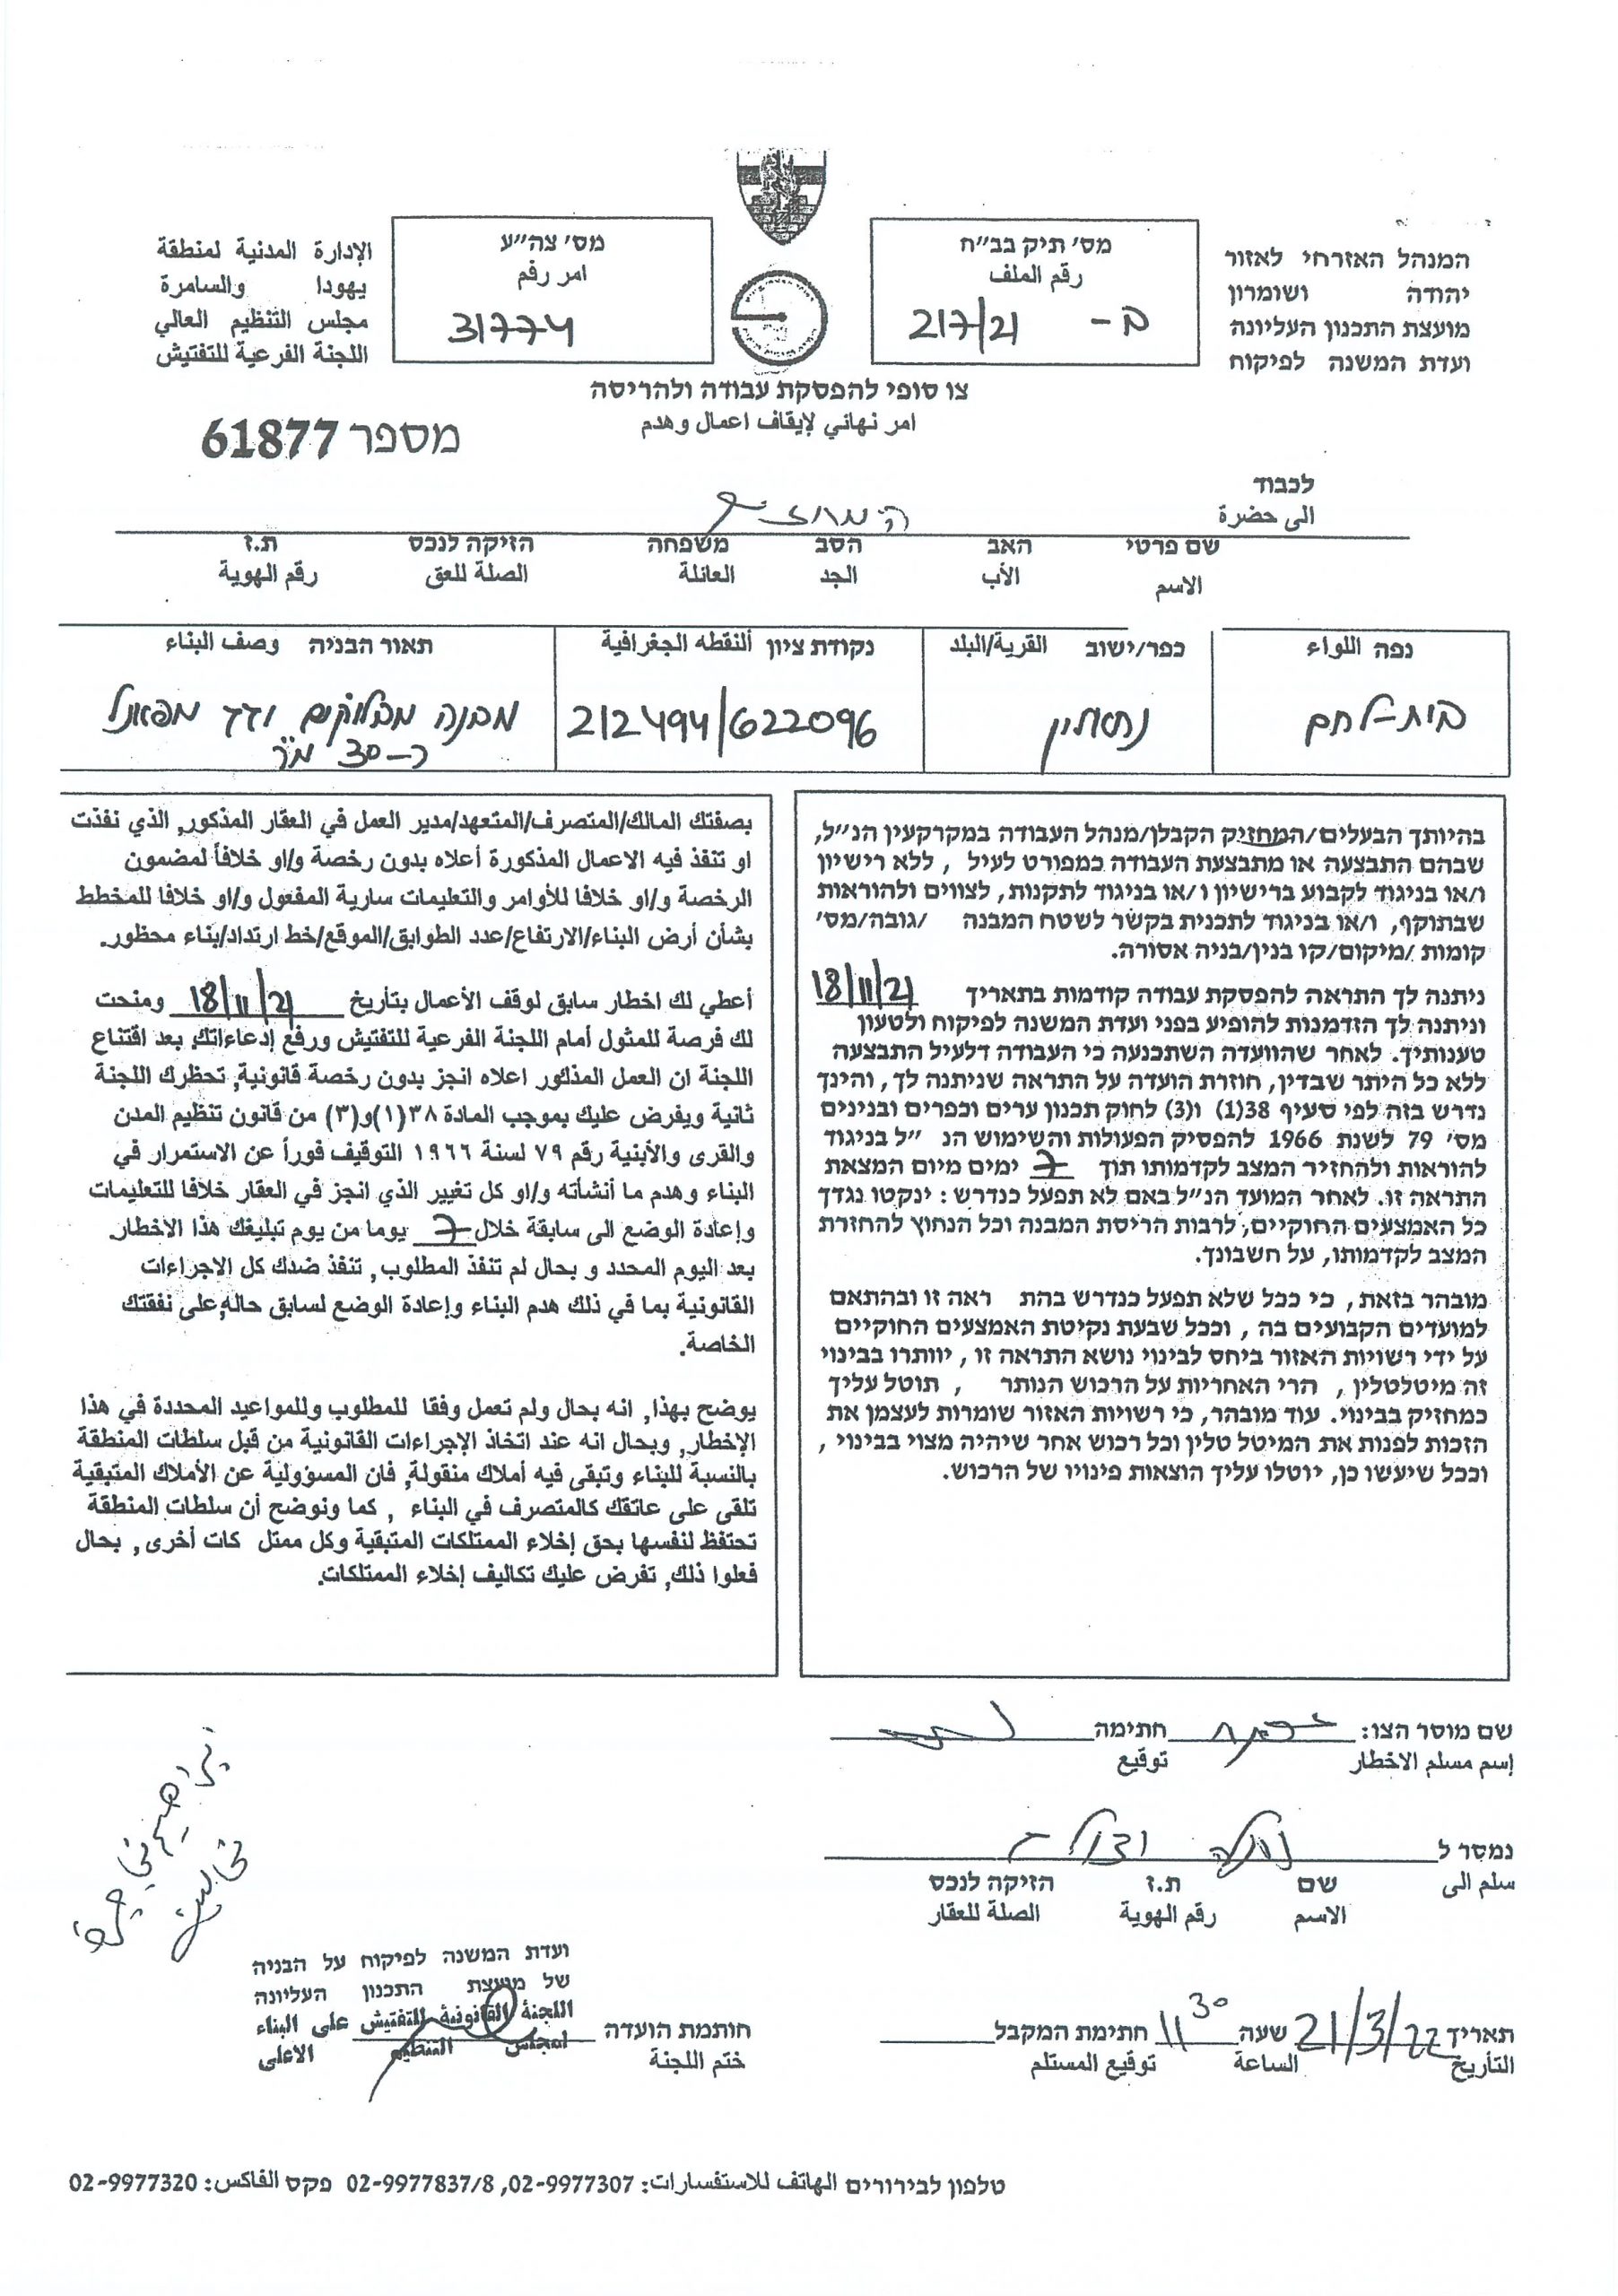 המנהל האזרחי לאזור
יהודה ושומרון
מועצת התכנון העליונה
ועדת המשנה לפיקוח
מס׳ תיק בב״ח
رقم الملف
ב- 217/21
מס׳ צה״ע
امر رقم
31774
الإدارة المدنية لمنطقة
يهودا والسامرة
مجلس التنظيم العالي
اللجنة الفرعية للتفتيش
צו סופי להפסקת עבודה ולהריסה
امر نهائي لإيقاف اعمال وهدم
מספר 61877
לכבוד
الى حضرة
המחזיק
שם פרטי האב הסב משפחה הזיקה לנכס ת.ז
الاسم الأب الجد العائلة الصلة للعق رقم الهوية
נפה اللواء
בית-לחם
כפר/ישוב القرية/البلد
נחאלין
נקודת ציון ألنقطه الجغرافية
212494/622096
תאור הבניה وصف البناء
מבנה מבלוקים וגג מפאנל
כ-30 מ״ר
בהיותך הבעלים/המחזיק הקבלן/מנהל העבודה במקרקעין הנ״ל,
שבהם התבצעה או מתבצעת העבודה כמפורט לעיל , ללא רישיון
ו/או בניגוד לקבוע ברישיון ו/או בניגוד לתקנות, לצווים ולהוראות
שבתוקף, ו/או בניגוד לתכנית בקשר לשטח המבנה /גובה/מס׳
קומות /מיקום/קו בנין/בניה אסורה.
ניתנה לך התראה להפסקת עבודה קודמות בתאריך 18/11/21
וניתנה לך הזדמנות להופיע בפני ועדת המשנה לפיקוח ולטעון
טענותיך. לאחר שהוועדה השתכנעה כי העבודה דלעיל התבצעה
ללא כל היתר שבדין, חוזרת הועדה על התראה שניתנה לך, והינך
נדרש בזה לפי סעיף 38(1) ו(3) לחוק תכנון ערים וכפרים ובנינים
מס׳ 79 לשנת 1966 להפסיק הפעולות והשימוש הנ ״ל בניגוד
להוראות ולהחזיר המצב לקדמותו תוך 7 ימים מיום המצאת
התראה זו. לאחר המועד הנ״ל באם לא תפעל כנדרש: ינקטו נגדך
כל האמצעים החוקיים, לרבות הריסת המבנה וכל הנחוץ להחזרת
המצב לקדמותו, על חשבונך.
מובהר בזאת, כי ככל שלא תפעל כנדרש בהת ראה זו ובהתאם
למועדים הקבועים בה, וככל שבעת נקיטת האמצעים החוקיים
על ידי רשויות האזור ביחס לבינוי נושא התראה זו, יוותרו בבינוי
זה מיטלטלין, הרי האחריות על הרכוש הנותר , תוטל עליך
כמחזיק בבינוי. עוד מובהר, כי רשויות האזור שומרות לעצמן את
הזכות לפנות את המיטל טלין וכל רכוש אחר שיהיה מצוי בבינוי,
וככל שיעשו כן, יוטלו עליך הוצאות פינויו של הרכוש.
بصفتك المالك/المتصرف/المتعهد/مدير العمل في العقار المذكور, الذي نفذت
او تنفذ فيه الاعمال المذكورة أعلاه بدون رخصة و/او خلافاً لمضمون
الرخصة و/او خلافا للأوامر والتعليمات سارية المفعول و/او خلافا للمخطط
بشأن أرض البناء/الارتفاع/عدد الطوابق/الموقع/خط ارتداد/بناء محظور.
أعطي لك اخطار سابق لوقف الأعمال بتأريخ 18/11/21 ومنحت
لك فرصة للمثول أمام اللجنة الفرعية للتفتيش ورفع إدعاءاتك. بعد اقتناع
اللجنة ان العمل المذكور اعلاه انجز بدون رخصة قانونية, تحظرك اللجنة
ثانية ويفرض عليك بموجب المادة ٣٨(١)و(٣) من قانون تنظيم المدن
والقرى والأبنية رقم ٧٩ لسنة ١٩٦٦ التوقيف فوراً عن الاستمرار في
البناء وهدم ما أنشأته و/او كل تغيير الذي انجز في العقار خلافا للتعليمات
وإعادة الوضع الى سابقة خلال 7 يوما من يوم تبليغك هذا الإخطار.
بعد اليوم المحدد و بحال لم تنفذ المطلوب, تنفذ ضدك كل الاجراءات
القانونية بما في ذلك هدم البناء وإعادة الوضع لسابق حاله, على نفقتك
الخاصة.
يوضح بهذا, انه بحال ولم تعمل وفقا للمطلوب وللمواعيد المحددة في هذا
الإخطار, وبحال انه عند اتخاذ الإجراءات القانونية من قبل سلطات المنطقة
بالنسبة للبناء وتبقى فيه أملاك منقولة, فان المسؤولية عن الأملاك المتبقية
تلقى على عاتقك كالمتصرف في البناء , كما ونوضح أن سلطات المنطقة
تحتفظ لنفسها بحق إخلاء الممتلكات المتبقية وكل ممتل كات أخرى, بحال
فعلوا ذلك, تفرض عليك تكاليف إخلاء الممتلكات.
שם מוסר הצו: חתימה
إسم مسلم الاخطار توقيع
נמסר ל
سلم الى
שם ת.ז הזיקה לנכס
الاسم رقم الهوية الصلة للعقار
תאריך 21/3/22 שעה 11 30 חתימת המקבל
التأريخ الساعة توقيع المستلم
חותמת הועדה
ختم اللجنة
ועדת המשנה לפיקוח על הבניה
של מועצת התכנון העליונה
اللجنة القانونية للتفتيش على البناء
لمجلس التنظيم الاعلى
טלפון לבירורים الهاتف للاستفسارات: 02-9977307, 02-9977837/8 פקס الفاكس: 02-9977320